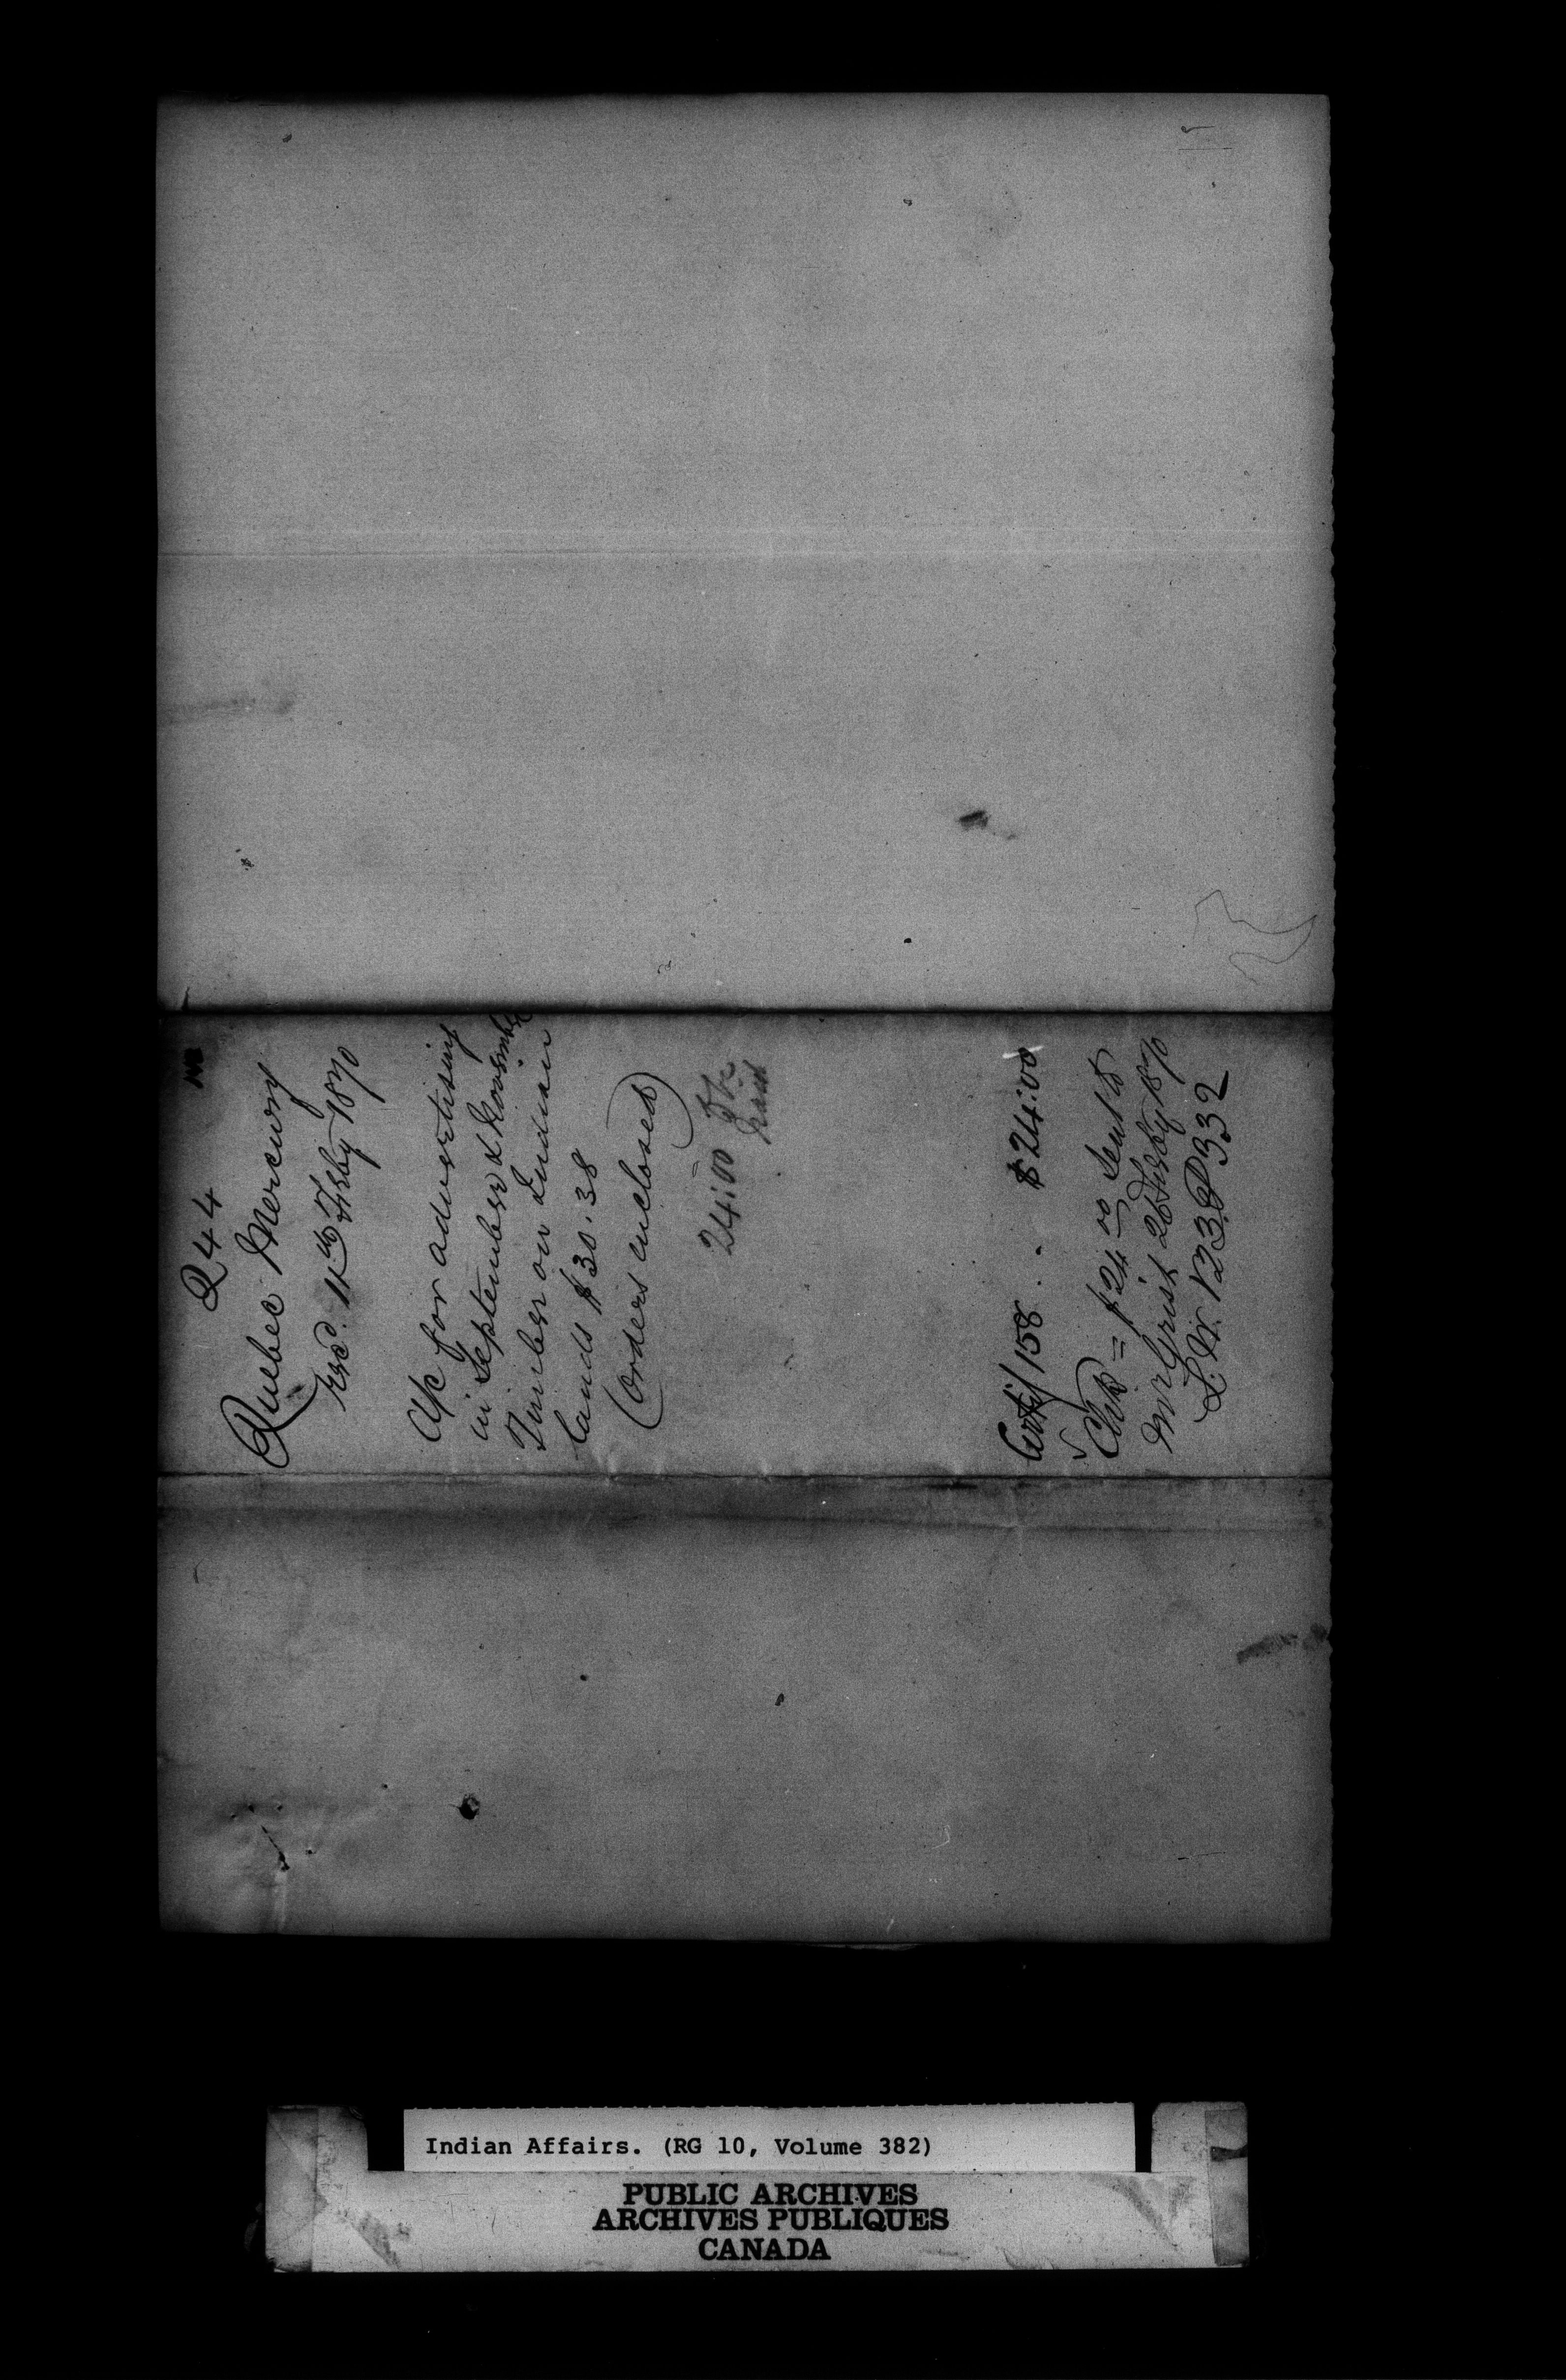 Q 44
Quebec Mercury
Recd. 11th Feby 1870
A/c for advertising
in September & November
Timber on Indian
lands $30.38
(Orders enclosed)
24.00 paid
Certif 158 . . $24.00
Chk = $24.00 sent to
Mr Grist 26 Feby 1870
L. Bk 23 P 332
Indian Affairs. (RG 10, Volume 382)
PUBLIC ARCHIVES
ARCHIVES PUBLIQUES
CANADA